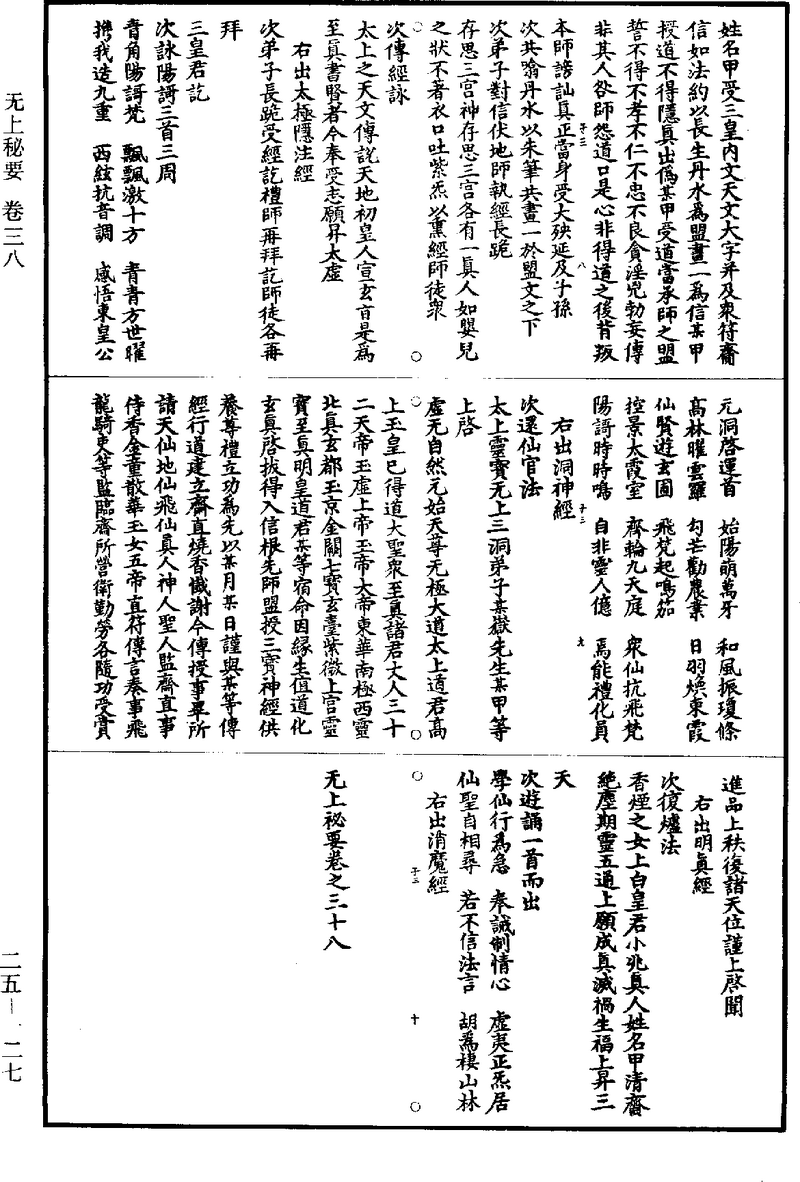 无上秘要 卷三八
二五—一二七
姓名甲受三皇內文天文大字并及衆符齋
信如法約以長生丹水爲盟畫一爲信某甲
授道不得隱真出僞某甲受道當承師之盟
誓不得不孝不仁不忠不良貪淫兇勃妄傳
非其人咎師怨道口是心非得道之後背叛
子三 八
本師謗訕真正當身受大殃延及子孫
次共歃丹水以朱筆共畫一於盟文之下
次弟子對信伏地師執經長跪
存思三宮神存思三宮各有一真人如嬰兒
之狀不著衣口吐紫炁以熏經師徒衆
次傳經詠
太上之天文傳說天地初皇人宣玄音是爲
至真書賢者今奉受志願昇太虛
右出太極隱注經
次弟子長跪受經訖禮師再拜訖師徒各再
拜
三皇君訖
次詠陽謌三首三周
青角陽謌梵 飄飄激十方 青青方世曜
擕我造九重 西絃抗音調 感悟東皇公
元洞啓運首 始陽萌萬牙 和風振瓊條
高林曜雲羅 勾芒勸農業 日羽煥東霞
仙賢遊玄圃 飛梵起鳴笳
控景太霞室 齊輪九天庭 衆仙抗飛梵
陽謌時時鳴 自非靈人億 焉能禮化員
子三 九
右出洞神經
次還仙官法
太上靈寶无上三洞弟子某嶽先生某甲等
上啓
虛无自然元始天尊无極大道太上道君高
上玉皇已得道大聖衆至真諸君丈人三十
二天帝玉虛上帝玉帝大帝東華南極西靈
北真玄都玉京金闕七寶玄臺紫微上宮靈
寶至真明皇道君某等宿命因緣生值道化
玄真啓拔得入信根先師盟授三寶神經供
養尊禮立功爲先以某月某日謹與某等傳
經行道建立齋直燒香懺謝今傳授事畢所
請天仙地仙飛仙真人神人聖人監齋直事
侍香金童散華玉女五帝直符傳言奏事飛
龍騎吏等監臨齋所營衛勤勞各隨功受賞
進品上秩復諸天位謹上啓聞
右出明真經
次復爐法
香煙之女上白皇君小兆真人姓名甲清齋
絶塵期靈五通上願成真滅禍生福上昇三
天
次遊誦一首而出
學仙行爲急 奉誠制情心 虛夷正炁居
仙聖自相尋 若不信法言 胡爲棲山林
子三 十
右出消魔經
无上祕要卷之三十八